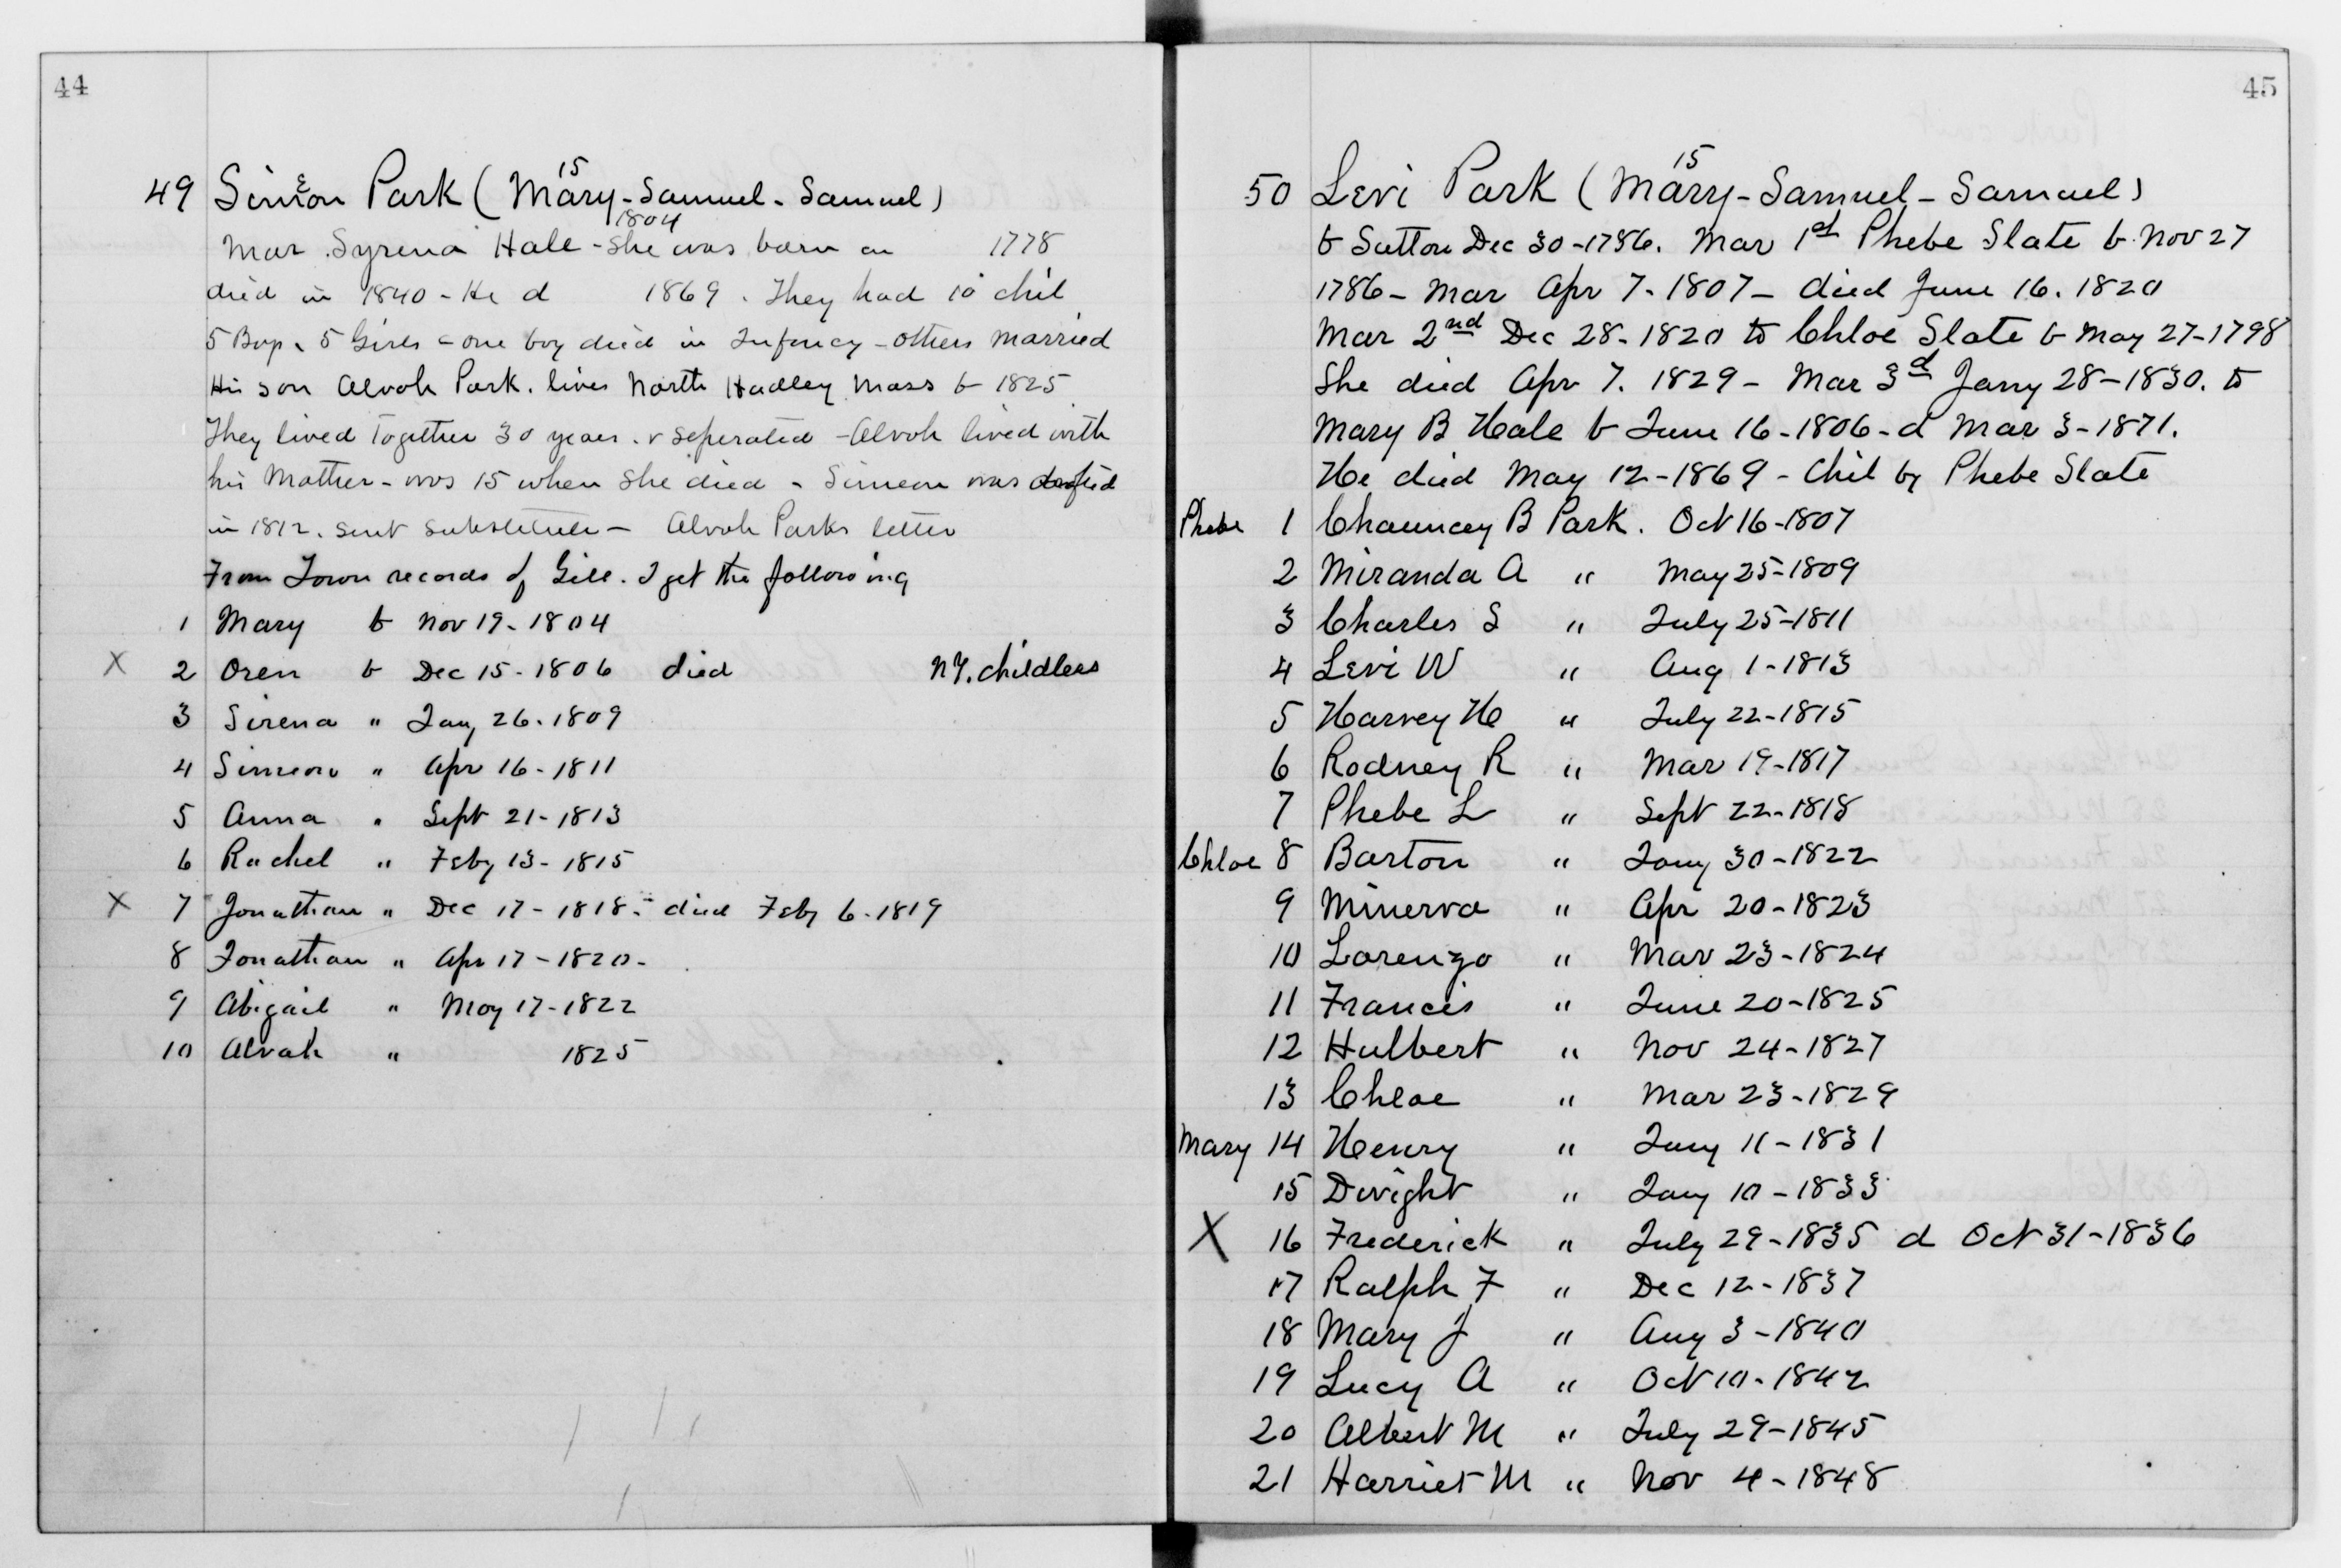 44
49 Simeon Park (Mary 15 - Samuel - Samuel)
Mar Syrena Hale - 1804 She was born on 1778
died in 1840 - He d 1869. They had 10 chil
5 Boys & 5 Girls - one boy died in Infancy - others married
His son Alvah Park. lives North Hadley Mass b 1825
They lived Together 30 years. & seperated - Alvah lived with
his Mother - was 15 when she died - Simeon was drafted
in 1812. sent substitute - Alvah Parks letter
From Town records of Gill. I get the following
1 Mary b Nov 19 - 1804
X 2 Oren b Dec 15 - 1806 died N.Y. childless
3 Sirena " Jany 26 - 1809
4 Simeon " Apr 16 - 1811
5 Anna " Sept 21 - 1813
6 Rachel " Feby 13 - 1815
X 7 Jonathan " Dec 17 - 1818 - died Feby 6 - 1819
8 Jonathan " Apr 17 - 1820 -
9 Abigail " May 17 - 1822
10 Alvah " 1825
45
50 Levi Park (Mary 15 - Samuel - Samuel)
b Sutton Dec 30 - 1786. Mar 1st Phebe Slate b. Nov 27
1786 - Mar Apr 7 - 1807 - died June 16. 1820
Mar 2nd Dec 28 - 1820 to Chloe Slate b May 27 - 1798
She died Apr 7. 1829 - Mar 3d Jany 28 - 1830. to
Mary B Hale b June 16 - 1806 - d Mar 3 - 1871.
He died May 12 - 1869 - Chil by Phebe Slate
Phebe 1 Chauncey B Park. Oct 16 - 1807
2 Miranda A " May 25 - 1809
3 Charles S " July 25 - 1811
4 Levi W " Aug 1 - 1813
5 Harvey H " July 22 - 1815
6 Rodney R " Mar 19 - 1817
7 Phebe L " Sept 22 - 1818
Chloe 8 Barton " Jany 30 - 1822
9 Minerva " Apr 20 - 1823
10 Lorenzo " Mar 23 - 1824
11 Francis " June 20 - 1825
12 Hulbert " Nov 24 - 1827
13 Chloe " Mar 23 - 1829
Mary 14 Henry " Jany 11 - 1831
15 Dwight " Jany 10 - 1833
X 16 Frederick " July 29 - 1835 d Oct 31 - 1836
17 Ralph F " Dec 12 - 1837
18 Mary J " Aug 3 - 1840
19 Lucy A " Oct 10 - 1842
20 Albert M " July 29 - 1845
21 Harriet M " Nov 4 - 1848